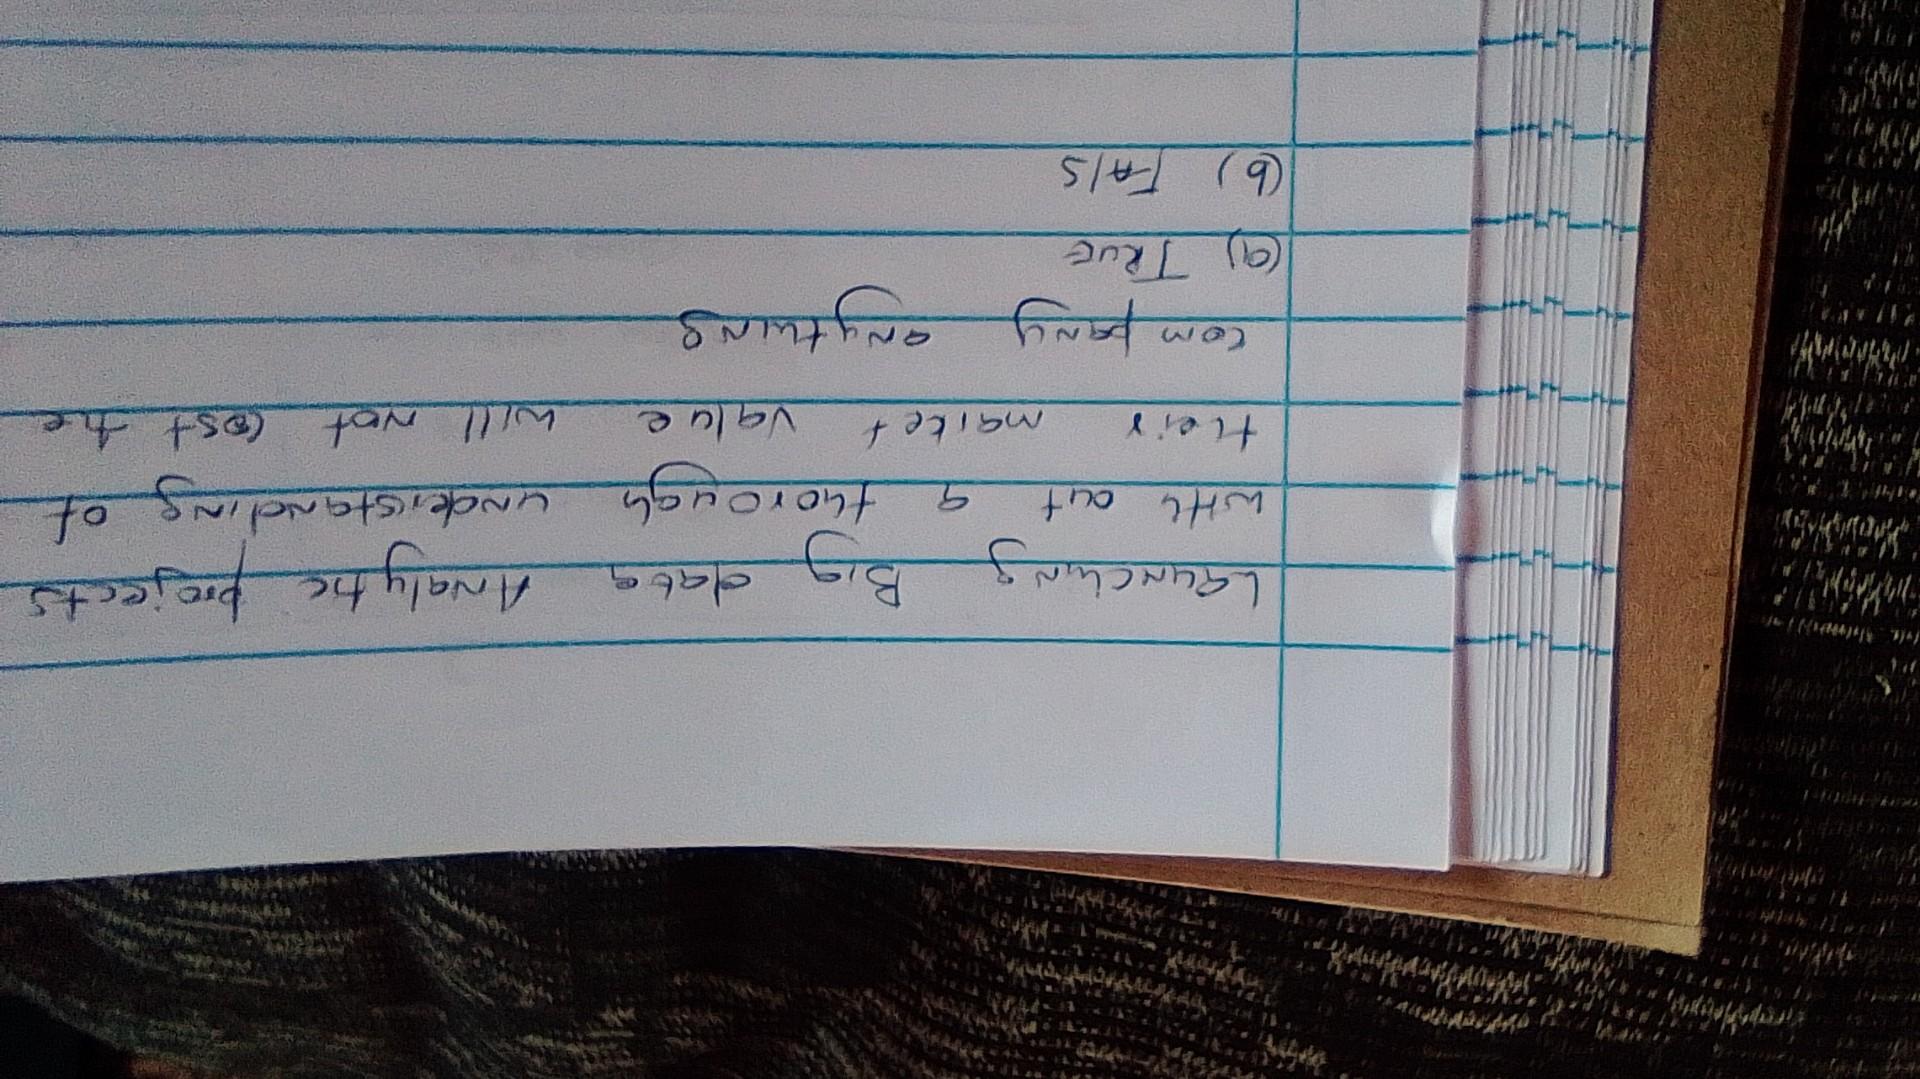 Launching Big data Analytic projects
with out a thorough understanding of
their market value will not cost the
company anything
(a) TRUE
(b) FAlS